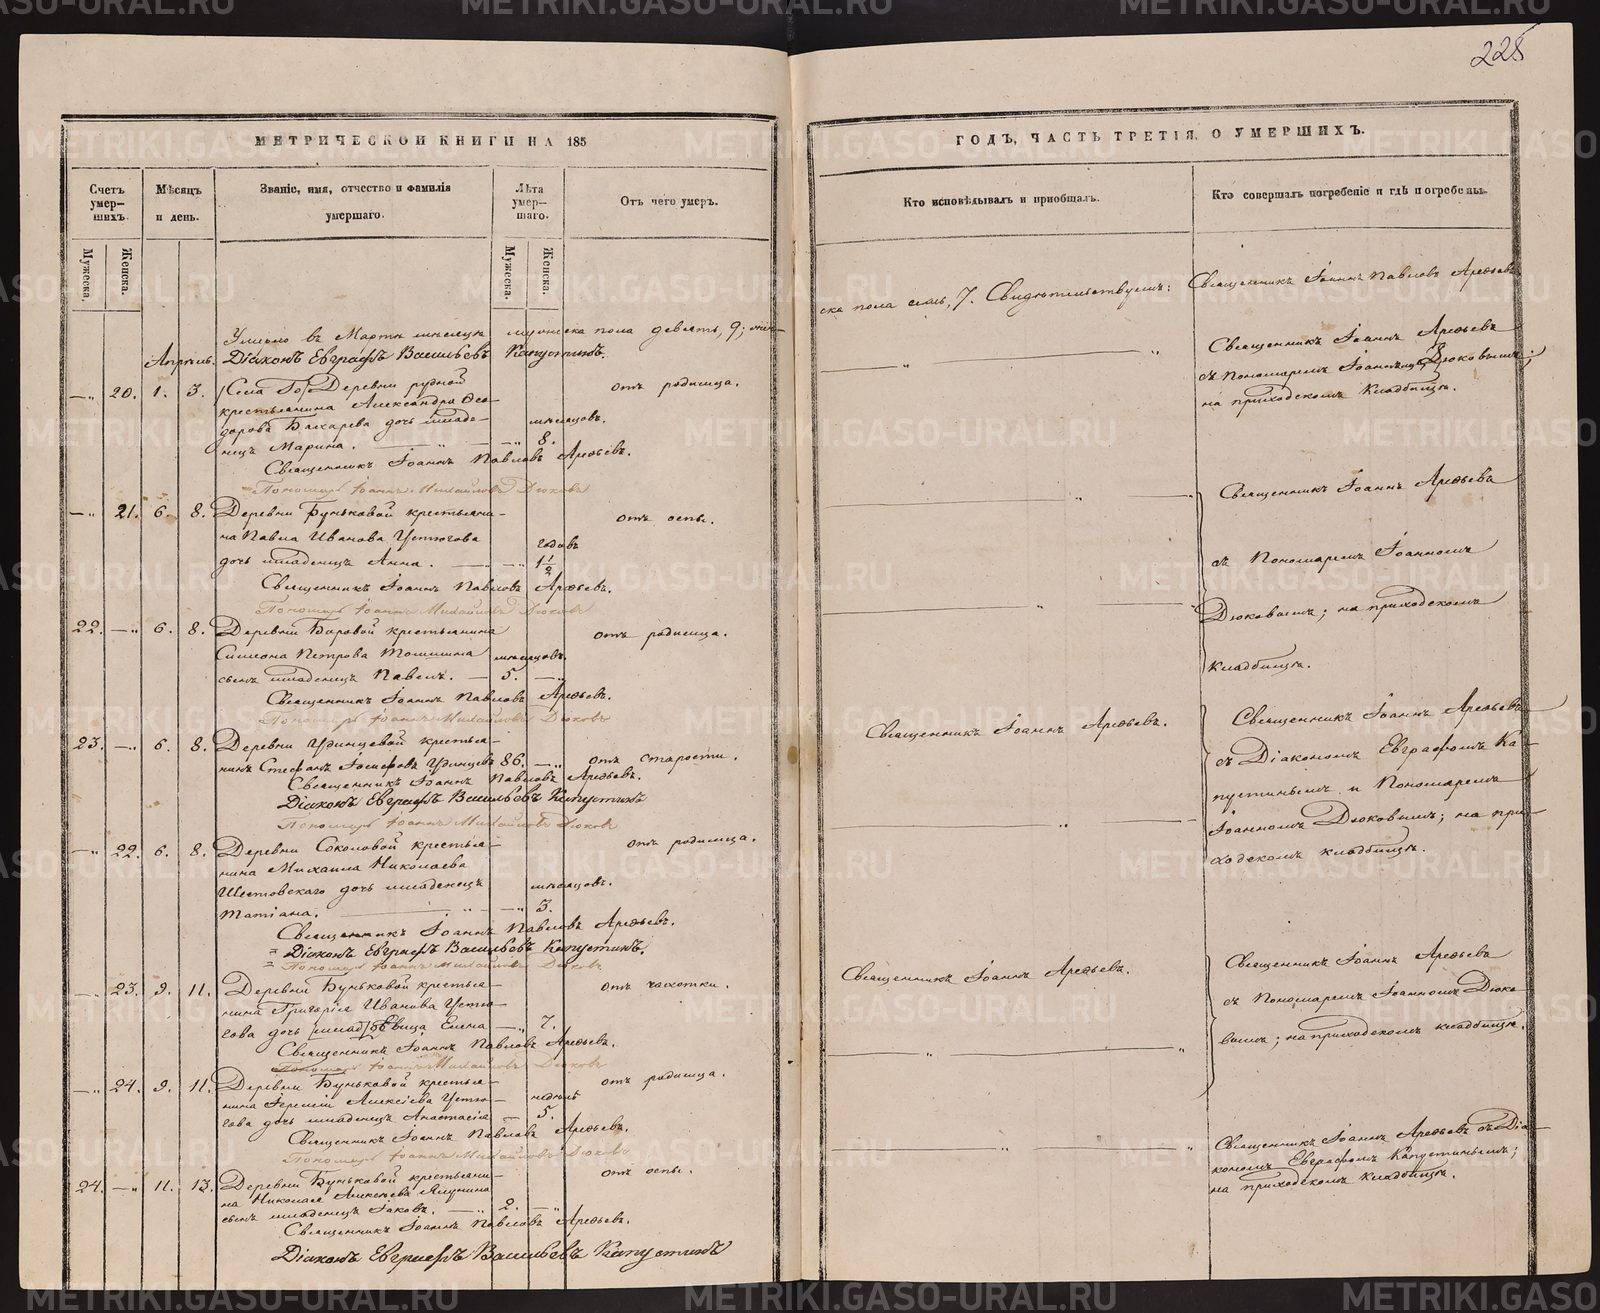 228
МЕТРИЧЕСКОЙ КНИГИ НА 185
Счетъ умер- шихъ.
Мѣсяцъ и день.
Званіе, имя, отчество и фамилія умершаго.
Лѣта умер- шаго.
Отъ чего умеръ.
Мужеска.
Женска.
Мужеска.
Женска.
Умерло въ Мартѣ мѣсяцѣ мужеска пола девять, 9; жен-
Апрѣль. Діаконъ Евграфъ Васильевъ Капустинъ.
20. 1. 3. Деревни рудной отъ родимца.
крестьянина Александра Ѳео-
дорова Бахарева дочь младе- мѣсяцовъ.
нецъ Марина. 8.
Священникъ Іоаннъ Павловъ Арефьевъ.
Пономарь Іоаннъ Михайловъ Дюковъ
21. 6. 8. Деревни Буньковой крестьяни- отъ оспы.
на Павла Иванова Устюгова годовъ
дочь младенецъ Анна. 1½
Священникъ Іоаннъ Павловъ Арефьевъ.
Пономарь Іоаннъ Михайловъ Дюковъ
22. 6. 8. Деревни Боровой крестьянина отъ родимца.
Симеона Петрова Томшина мѣсяцовъ.
сынъ младенецъ Павелъ. 5.
Священникъ Іоаннъ Павловъ Арефьевъ.
Пономарь Іоаннъ Михайловъ Дюковъ
23. 6. 8. Деревни Удинцевой крестья-
нинъ Стефанъ Іосифовъ Удинцевъ 86. отъ старости.
Священникъ Іоаннъ Павловъ Арефьевъ.
Діаконъ Евграфъ Васильевъ Капустинъ
Пономарь Іоаннъ Михайловъ Дюковъ
22. 6. 8. Деревни Соколовой крестья- отъ родимца.
нина Михаила Николаева
Шестовскаго дочь младенецъ мѣсяцовъ.
Татіана. 3.
Священникъ Іоаннъ Павловъ Арефьевъ.
Діаконъ Евграфъ Васильевъ Капустинъ.
Пономарь Іоаннъ Михайловъ Дюковъ
23. 9. 11. Деревни Буньковой крестья- отъ чахотки.
нина Григорія Иванова Устю-
гова дочь [млад] дѣвица Елена 7.
Священникъ Іоаннъ Павловъ Арефьевъ.
Пономарь Іоаннъ Михайловъ Дюковъ
24. 9. 11. Деревни Буньковой крестья- отъ родимца.
нина Іереміи Алексіева Устю- недѣль
гова дочь младенецъ Анастасія 5.
Священникъ Іоаннъ Павловъ Арефьевъ.
Пономарь Іоаннъ Михайловъ Дюковъ
24. 11. 13. Деревни Буньковой крестьяни- отъ оспы.
на Николая Алексѣева
сынъ младенецъ Іаковъ. 2.
Священникъ Іоаннъ Павловъ Арефьевъ.
Діаконъ Евграфъ Васильевъ Капустинъ
ГОДЪ, ЧАСТЬ ТРЕТІЯ, О УМЕРШИХЪ.
Кто исповѣдывалъ и приобщалъ.
Кто совершалъ погребеніе и гдѣ погребены.
ска пола семь, 7. Свидѣтельствуемъ: Священникъ Іоаннъ Павловъ Арефьевъ
Священникъ Іоаннъ Арефьевъ
съ Пономаремъ Іоанномъ Дюковымъ;
на приходскомъ Кладбищѣ.
Священникъ Іоаннъ Арефьевъ
съ Пономаремъ Іоанномъ
Дюковымъ; на приходскомъ
кладбищѣ.
Священникъ Іоаннъ Арефьевъ.
Священникъ Іоаннъ Арефьевъ
съ Діакономъ Евграфомъ Ка-
пустинымъ и Пономаремъ
Іоанномъ Дюковымъ; на при-
ходскомъ кладбищѣ.
Священникъ Іоаннъ Арефьевъ.
Священникъ Іоаннъ Арефьевъ
съ Пономаремъ Іоанномъ Дюко-
вымъ; на приходскомъ кладбищѣ.
Священникъ Іоаннъ Арефьевъ съ Діа-
кономъ Евграфомъ Капустинымъ;
на приходскомъ кладбищѣ.
METRIKI.GASO-URAL.RU